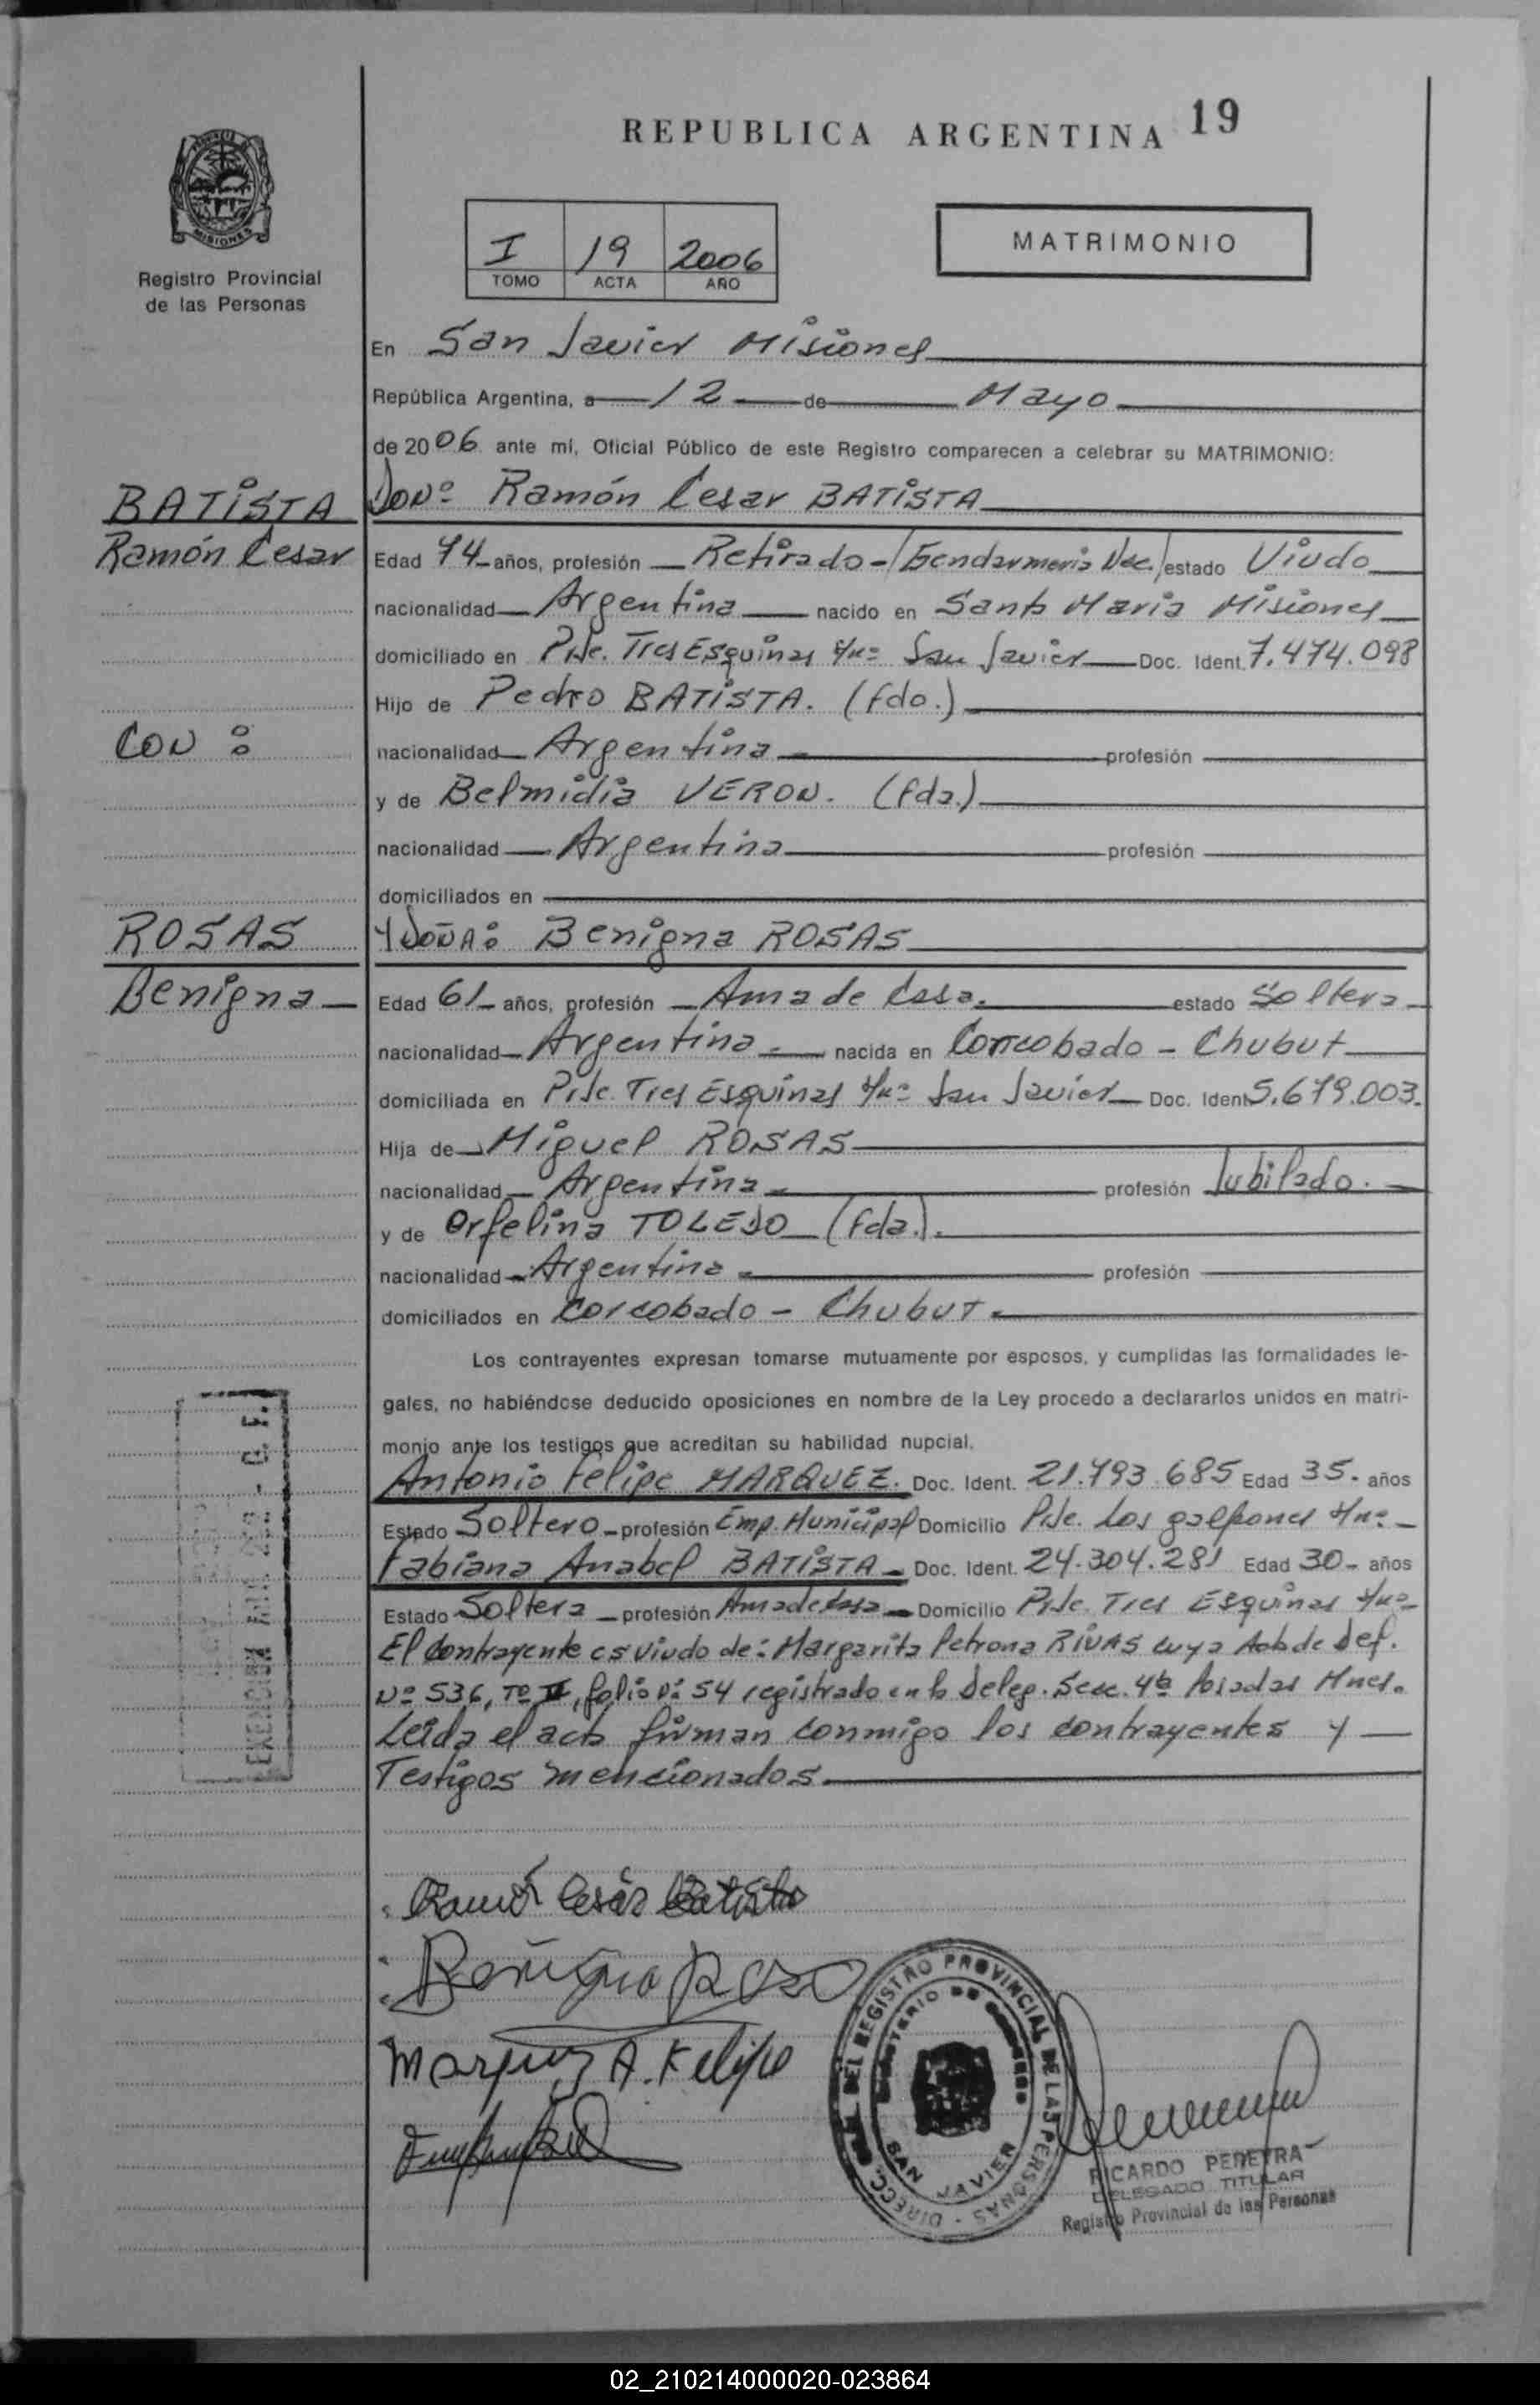 REPUBLICA ARGENTINA 19
MISIONES
Registro Provincial
de las Personas
I 19 2006
TOMO ACTA AÑO
MATRIMONIO
En San Javier Misiones
República Argentina, a 12 de Mayo
de 2006 ante mí, Oficial Público de este Registro comparecen a celebrar su MATRIMONIO:
BATISTA
Ramón Cesar
DON: Ramón Cesar BATISTA
Edad 74 años, profesión Retirado-/Gendarmeria Nac./ estado Viudo
nacionalidad Argentina nacido en Santa Maria Misiones
domiciliado en Pje. Tres Esquinas s/n= San Javier Doc. Ident. 7.474.098
Hijo de Pedro BATISTA. (fdo.)
CON :
nacionalidad Argentina profesión
y de Belmidia VERON. (fda.)
nacionalidad Argentina profesión
domiciliados en
ROSAS
Benigna
Y DOÑA: Benigna ROSAS
Edad 61 años, profesión Ama de Casa. estado Soltera
nacionalidad Argentina nacida en Corcobado - Chubut
domiciliada en Pje. Tres Esquinas s/n= San Javier Doc. Ident. 5.679.003.
Hija de Miguel ROSAS
nacionalidad Argentina profesión Jubilado.
y de Orfelina TOLEDO (fda.).
nacionalidad Argentina profesión
domiciliados en Corcobado - Chubut.
Los contrayentes expresan tomarse mutuamente por esposos, y cumplidas las formalidades le-
gales, no habiéndose deducido oposiciones en nombre de la Ley procedo a declararlos unidos en matri-
monio ante los testigos que acreditan su habilidad nupcial.
Antonio Felipe MARQUEZ. Doc. Ident. 21.793.685 Edad 35. años
Estado Soltero profesión Emp. Municipal Domicilio Pje. Los galpones s/n=
Fabiana Anabel BATISTA Doc. Ident. 24.304.281 Edad 30 años
Estado Soltera profesión Ama de Casa Domicilio Pje. Tres Esquinas s/n=
El Contrayente es viudo de: Margarita Petrona RIVAS cuya Acta de Def.
Nº 536, Tº II, folio Nº 54 registrado en la Deleg. Secc. 4ta Posadas Mnes.
Leida el acta firman conmigo los contrayentes y
Testigos mencionados.
Ramón Cesár Batista
Benigna Rosa
Marquez A. Felipe
DIRECC. GRAL. DEL REGISTRO PROVINCIAL DE LAS PERSONAS
MINISTERIO DE GOBIERNO
SAN JAVIER
RICARDO PEREYRA
DELEGADO TITULAR
Registro Provincial de las Personas
02_210214000020-023864